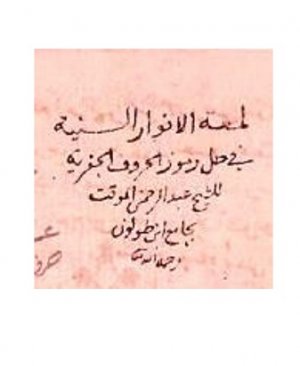 لمعة الانوار السنية
في حل رموز الحروف الجفرية
للشيخ عبد الرحمن الموقت
بجامع ابن طولون
رحمه الله